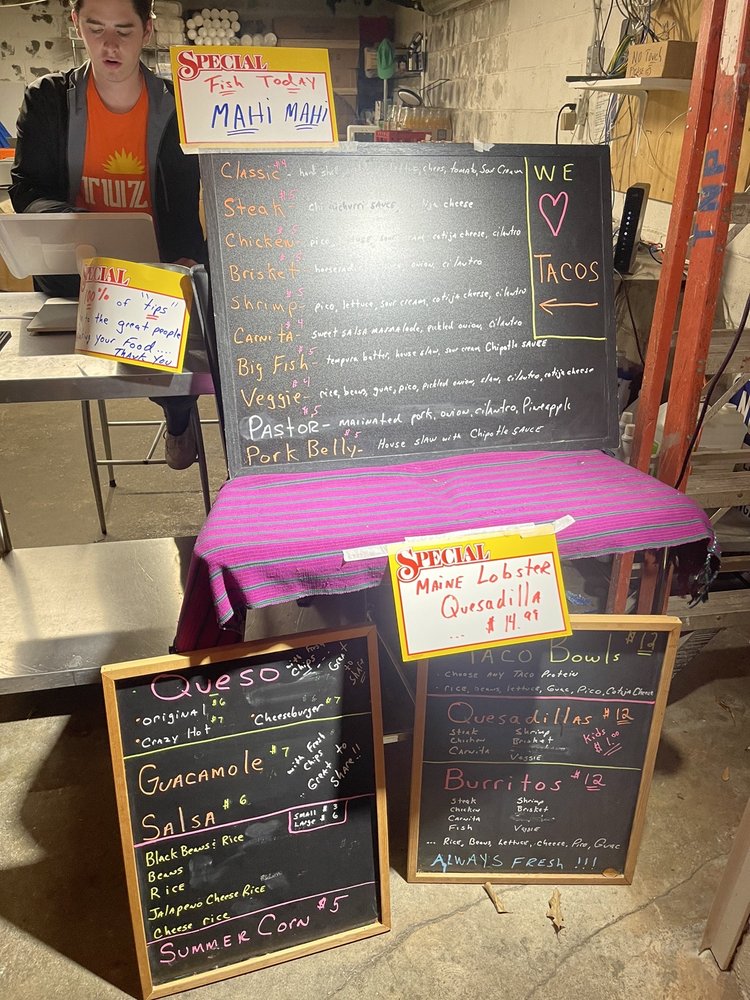 SPECIAL
Fish Today
MAHI MAHI
NO
SPECIAL
100% of "tips"
to the great people
your Food....
THANK YOU
CLASSIC $4 - hard shell cheese, tomato, Sour Cream
Steak $5 - chimichurri SAUCE cotija cheese
Chicken - pico, sour cream, cotija cheese, cilantro
Brisket - onion, cilantro
Shrimp $5 - pico, lettuce, sour cream, cotija cheese, cilantro
CARNITA $4 - sweet salsa marmalade, pickled onion, cilantro
Big Fish $5 - tempura batter, house slaw, sour cream Chipotle SAUCE
Veggie $4 - rice, beans, guac, pico, pickled onion, slaw, cilantro, cotija cheese
PASTOR $5 - marinated pork, onion, cilantro, Pineapple
Pork Belly $5 - House slaw with Chipotle SAUCE
WE
♡
TACOS
←
INP
SPECIAL
MAINE Lobster
Quesadilla
... $14.99
Queso with fresh chips Great to share
• original $6
• Crazy Hot $7
• Cheeseburger $7
GUACAMOLE $7
with Fresh Chips
Great to Share!!
SALSA $6
Small $3
Large $6
Black Beans & Rice
Beans
Rice
Jalapeño Cheese Rice
Cheese rice
SUMMER CORN $5
TACO Bowls $12
• Choose Any Taco Protein
• rice, beans, lettuce, Guac, Pico, Cotija Cheese
QUESADILLAS $12
Steak Shrimp
Chicken Brisket
Carnita
Veggie
Kids $1.00
Burritos $12
Steak Shrimp
Chicken Brisket
Carnita
Fish Veggie
... Rice, Beans, Lettuce, Cheese, Pico, Guac
ALWAYS FRESH!!!